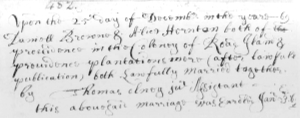 Upon the 25th day of December in the yeare
Samuell Browne & Alice Hernton both of
providence in the Colloney of Rhod Iland &
providence plantations were (after lawfull
publication) both Lawfully Married together
by Thomas olney Assistant
this abovesaid marriage was